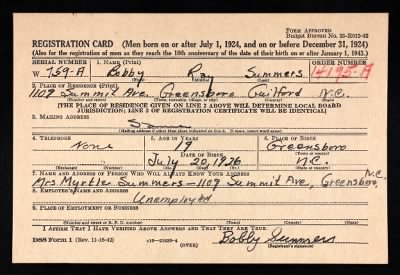 FORM APPROVED
Budget Bureau No. 33-R012-42
REGISTRATION CARD (Men born on or after July 1, 1924, and on or before December 31, 1924)
(Also for the registration of men as they reach the 18th anniversary of the date of their birth on or after January 1, 1943.)
SERIAL NUMBER 1. NAME (Print) ORDER NUMBER
W 759-A Bobby Ray Summers 14195-A
(First) (Middle) (Last)
2. PLACE OF RESIDENCE (Print)
1109 Summit Ave. Greensboro Guilford N.C.
(Number and street) (Town, township, village, or city) (County) (State)
[THE PLACE OF RESIDENCE GIVEN ON LINE 2 ABOVE WILL DETERMINE LOCAL BOARD
JURISDICTION; LINE 2 OF REGISTRATION CERTIFICATE WILL BE IDENTICAL]
3. MAILING ADDRESS
Same
[Mailing address if other than place indicated on line 2. If same, insert word same]
4. TELEPHONE 5. AGE IN YEARS 6. PLACE OF BIRTH
None 19 Greensboro
DATE OF BIRTH (Town or county)
July 20, 1926 N.C.
(Exchange) (Number) (Mo.) (Day) (Yr.) (State or country)
7. NAME AND ADDRESS OF PERSON WHO WILL ALWAYS KNOW YOUR ADDRESS
Mrs Myrtle Summers - 1109 Summit Ave, Greensboro, N.C.
8. EMPLOYER'S NAME AND ADDRESS
Unemployed
9. PLACE OF EMPLOYMENT OR BUSINESS
(Number and street or R. F. D. number) (Town) (County) (State)
I AFFIRM THAT I HAVE VERIFIED ABOVE ANSWERS AND THAT THEY ARE TRUE.
DSS Form 1 (Rev. 11-16-42) (OVER) Bobby Summers
(Registrant's signature)